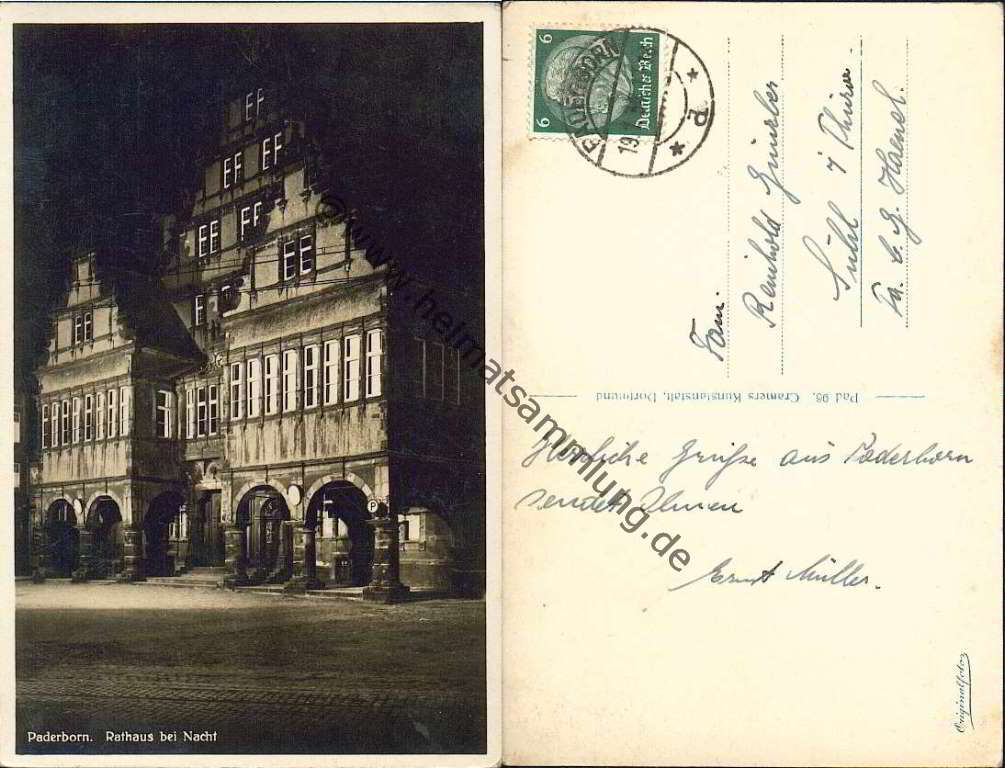 Paderborn. Rathaus bei Nacht
© www.heimatsammlung.de
6 6
Deutsches Reich
PADERBORN
19.
* d *
Fam.
Reinhold
Suhl i/ Thür.
Fa. C. G. Haenel.
Pad 98. Cramers Kunstanstalt, Dortmund
Herzliche Grüße aus Paderborn
sendet Ihnen
Ernst Müller.
Originalfoto
P